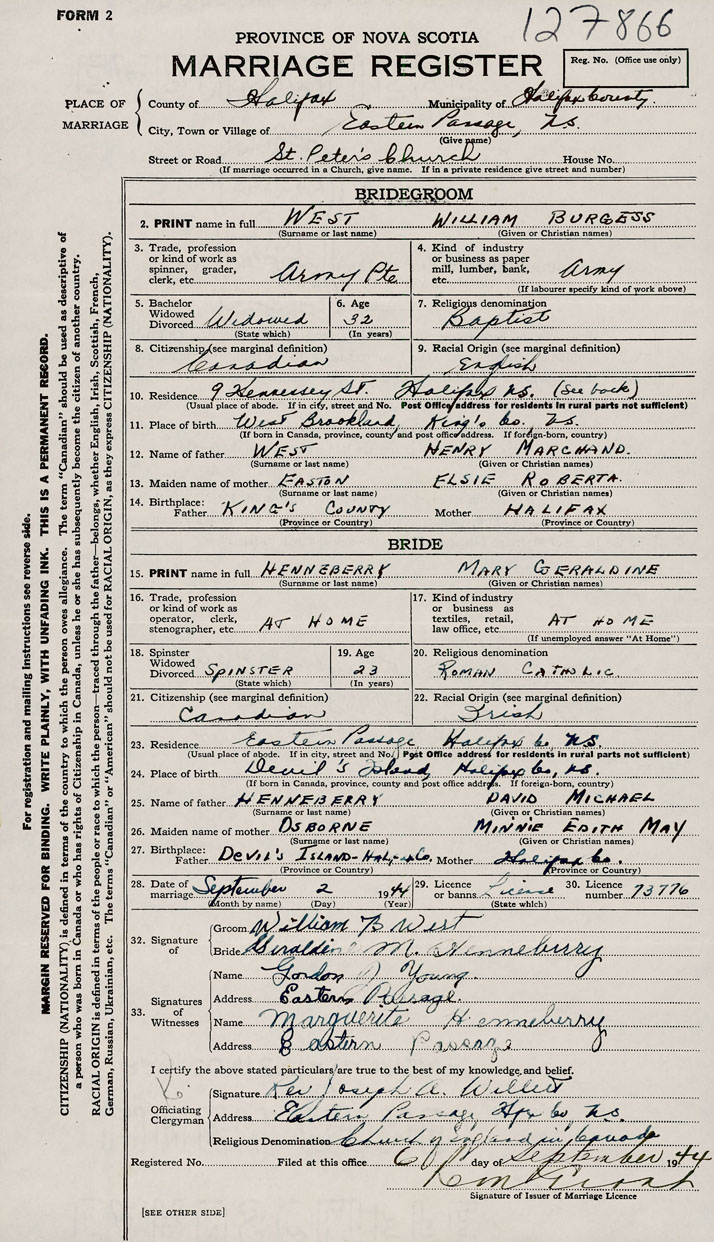 FORM 2
127866
PROVINCE OF NOVA SCOTIA
MARRIAGE REGISTER
Reg. No. (Office use only)
PLACE OF MARRIAGE
County of Halifax Municipality of Halifax County.
City, Town or Village of Eastern Passage, N.S.
(Give name)
Street or Road St. Peter's Church House No.
(If marriage occurred in a Church, give name. If in a private residence give street and number)
BRIDEGROOM
2. PRINT name in full WEST WILLIAM BURGESS
(Surname or last name) (Given or Christian names)
3. Trade, profession or kind of work as spinner, grader, clerk, etc. Army Pte
4. Kind of industry or business as paper mill, lumber, bank, etc. Army
(If labourer specify kind of work above)
5. Bachelor Widowed Divorced Widowed (State which)
6. Age 32 (In years)
7. Religious denomination Baptist
8. Citizenship (see marginal definition) Canadian
9. Racial Origin (see marginal definition) English
10. Residence 9 Hennessey St. Halifax N.S. (See back)
(Usual place of abode. If in city, street and No. Post Office address for residents in rural parts not sufficient)
11. Place of birth West Brookland, King's Co. N.S.
(If born in Canada, province, county and post office address. If foreign-born, country)
12. Name of father WEST HENRY MARCHAND.
(Surname or last name) (Given or Christian names)
13. Maiden name of mother EASTON ELSIE ROBERTA.
(Surname or last name) (Given or Christian names)
14. Birthplace: Father KING'S COUNTY Mother HALIFAX
(Province or Country) (Province or Country)
BRIDE
15. PRINT name in full HENNEBERRY MARY GERALDINE
(Surname or last name) (Given or Christian names)
16. Trade, profession or kind of work as operator, clerk, stenographer, etc. AT HOME
17. Kind of industry or business as textiles, retail, law office, etc. AT HOME
(If unemployed answer "At Home")
18. Spinster Widowed Divorced SPINSTER (State which)
19. Age 23 (In years)
20. Religious denomination ROMAN CATHOLIC
21. Citizenship (see marginal definition) Canadian
22. Racial Origin (see marginal definition) Irish
23. Residence Eastern Passage Halifax Co. N.S.
(Usual place of abode. If in city, street and No. Post Office address for residents in rural parts not sufficient)
24. Place of birth Devil's Island, Halifax Co., N.S.
(If born in Canada, province, county and post office address. If foreign-born, country)
25. Name of father HENNEBERRY DAVID MICHAEL
(Surname or last name) (Given or Christian names)
26. Maiden name of mother OSBORNE MINNIE EDITH MAY
(Surname or last name) (Given or Christian names)
27. Birthplace: Father DEVIL'S ISLAND-HALIFAX Co. Mother Halifax Co.
(Province or Country) (Province or Country)
28. Date of marriage September 2 1944
(Month by name) (Day) (Year)
29. Licence or banns License (State which)
30. Licence number 73776
32. Signature of
Groom William B West
Bride Geraldine M. Henneberry
33. Signatures of Witnesses
Name Gordon J Young.
Address Eastern Passage.
Name Marguerite Henneberry
Address Eastern Passage
I certify the above stated particulars are true to the best of my knowledge, and belief.
Officiating Clergyman
Signature Rev Joseph A. Willett
Address Eastern Passage, Hfx Co N.S.
Religious Denomination Church of England in Canada
Registered No. Filed at this office 6 day of September 1944
Signature of Issuer of Marriage Licence
[SEE OTHER SIDE]
For registration and mailing instructions see reverse side.
MARGIN RESERVED FOR BINDING. WRITE PLAINLY, WITH UNFADING INK. THIS IS A PERMANENT RECORD.
CITIZENSHIP (NATIONALITY) is defined in terms of the country to which the person owes allegiance. The term "Canadian" should be used as descriptive of
a person who was born in Canada or who has rights of Citizenship in Canada, unless he or she has subsequently become the citizen of another country.
RACIAL ORIGIN is defined in terms of the people or race to which the person—traced through the father—belongs, whether English, Irish, Scottish, French,
German, Russian, Ukrainian, etc. The terms "Canadian" or "American" should not be used for RACIAL ORIGIN, as they express CITIZENSHIP (NATIONALITY).